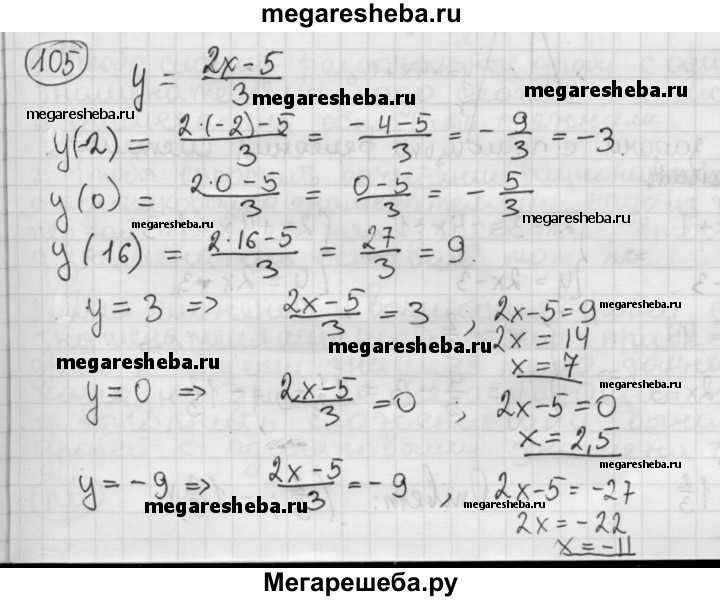 megaresheba.ru
105 y = (2x-5)/3
megaresheba.ru
megaresheba.ru
megaresheba.ru
y(-2) = (2·(-2)-5)/3 = (-4-5)/3 = -9/3 = -3.
y(0) = (2·0-5)/3 = (0-5)/3 = -5/3
megaresheba.ru
megaresheba.ru
y(16) = (2·16-5)/3 = 27/3 = 9.
y = 3 => (2x-5)/3 = 3 ; 2x-5 = 9
megaresheba.ru
2x = 14
megaresheba.ru
x = 7
megaresheba.ru
y = 0 => (2x-5)/3 = 0 ; 2x-5 = 0
megaresheba.ru
x = 2,5
megaresheba.ru
y = -9 => (2x-5)/3 = -9 , 2x-5 = -27
megaresheba.ru
megaresheba.ru
2x = -22
x = -11
Мегарешеба.ру